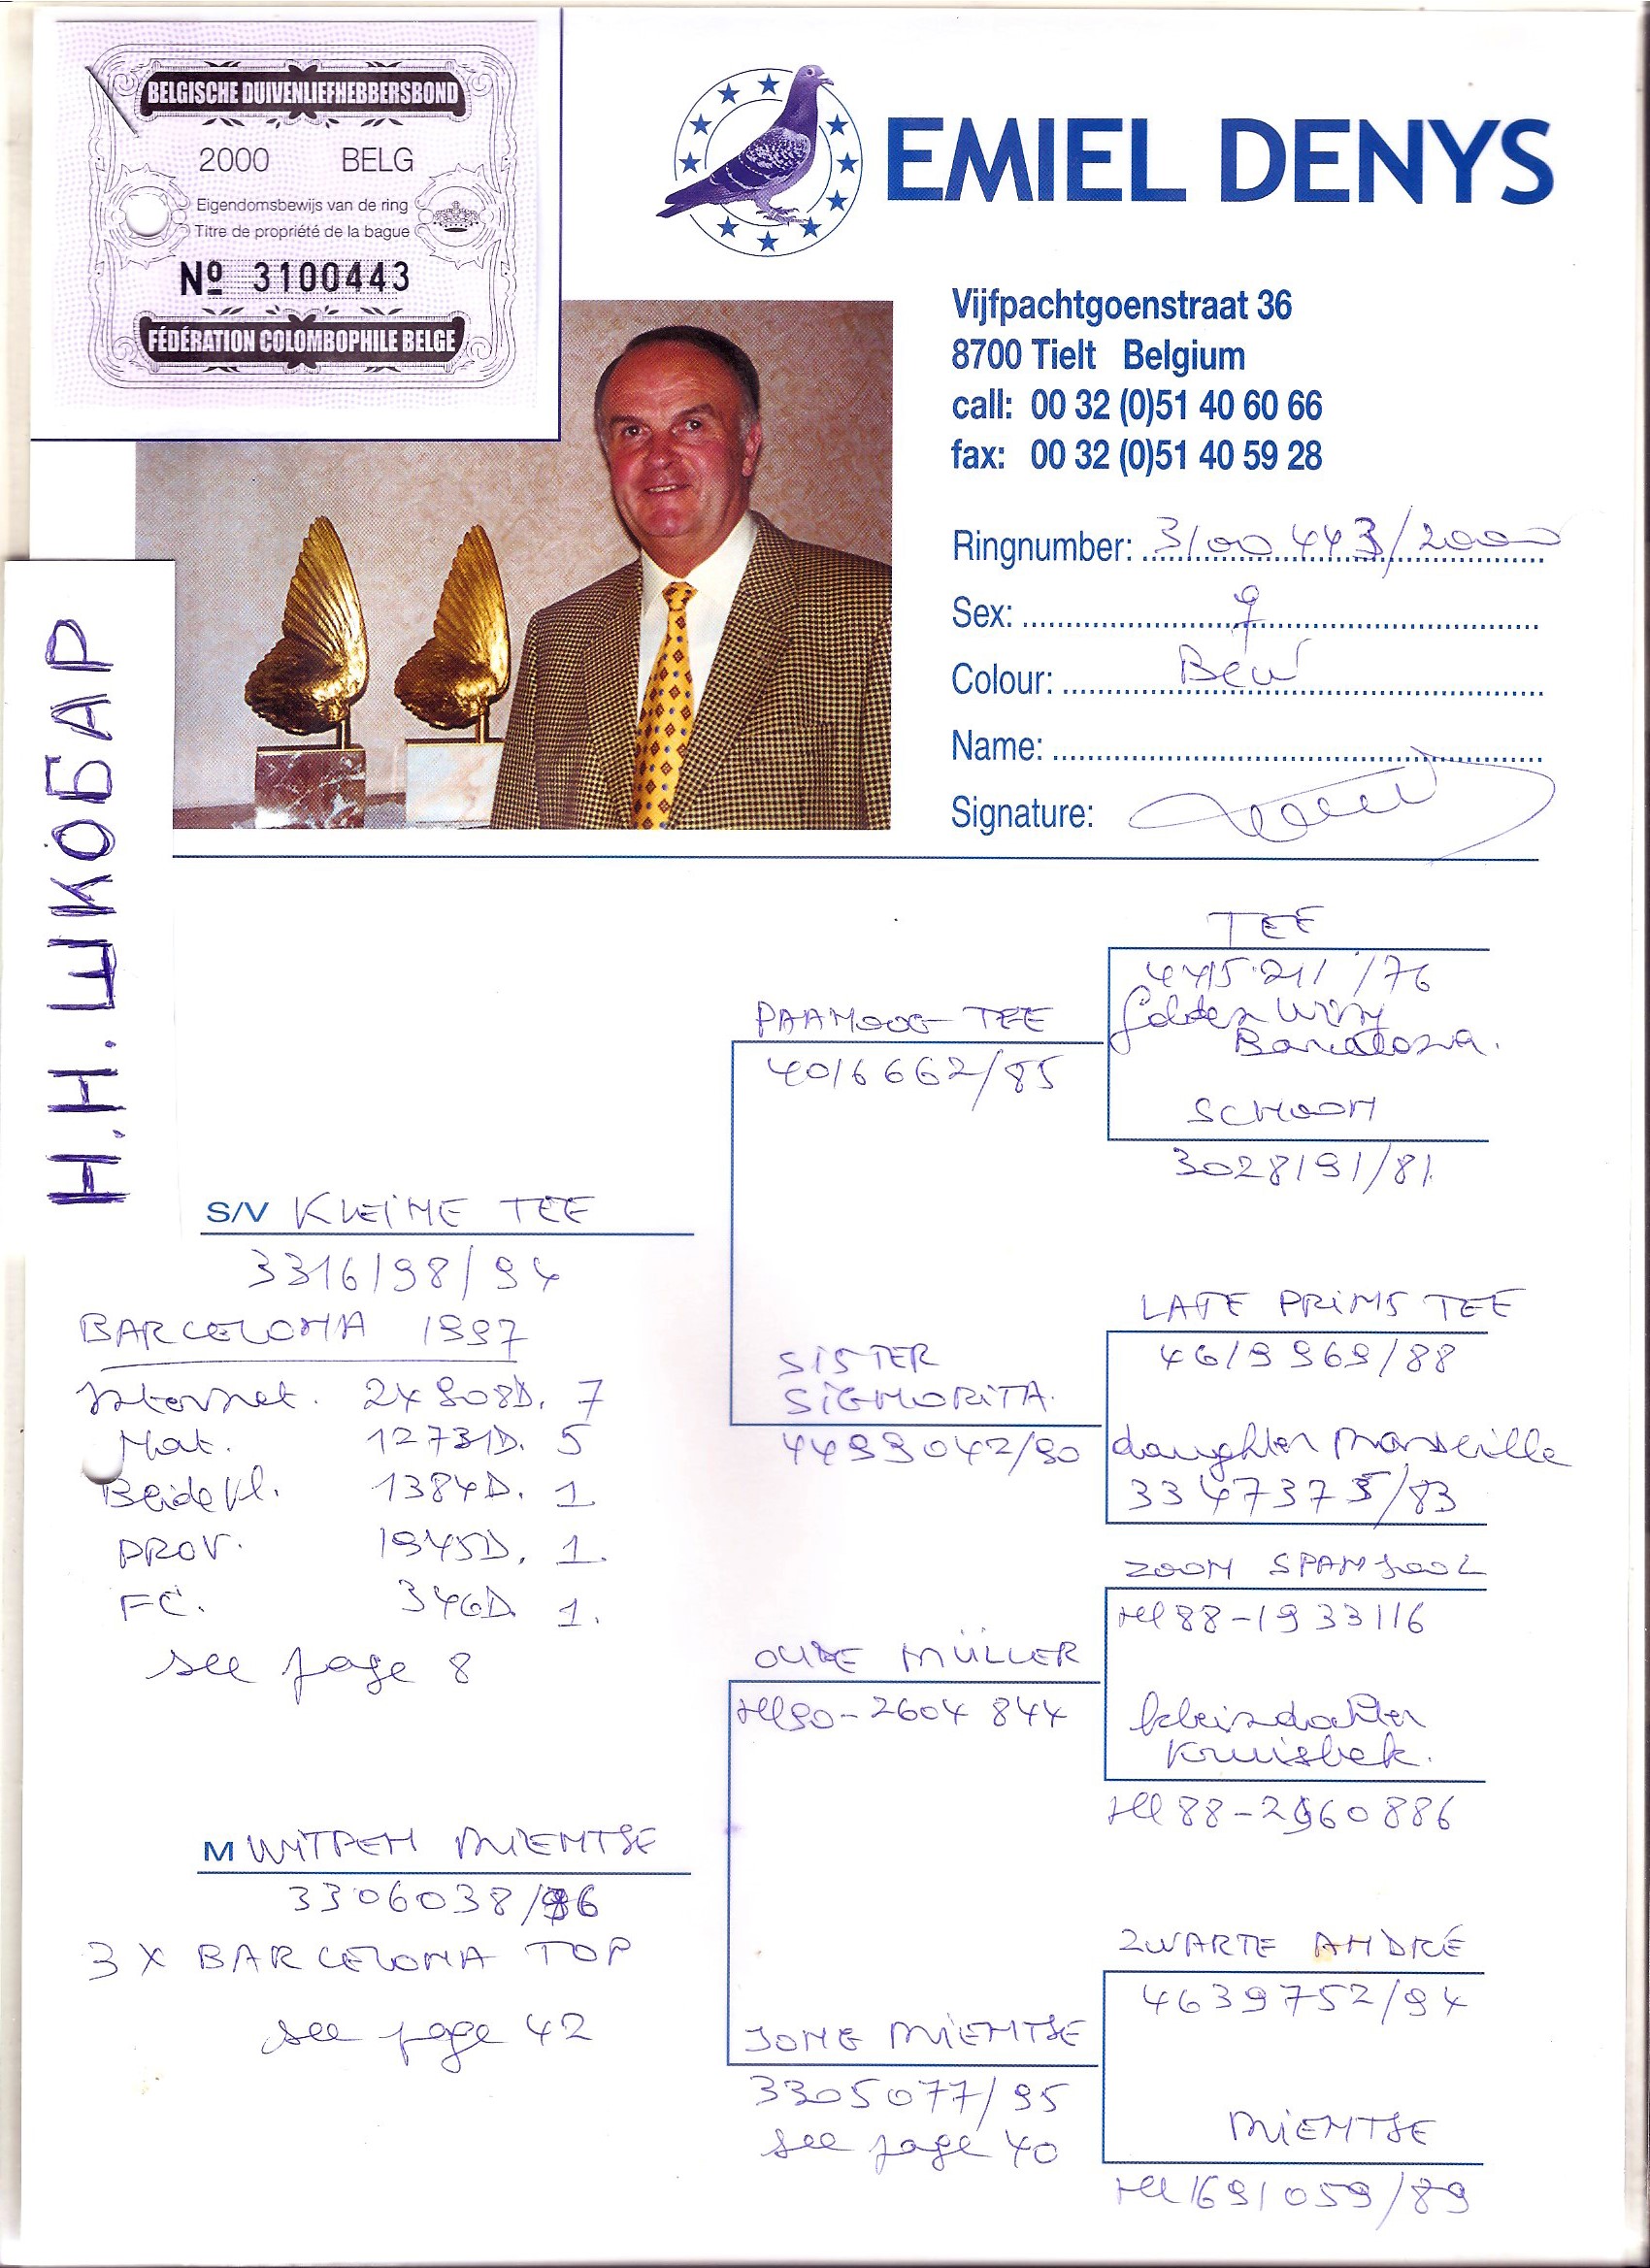 BELGISCHE DUIVENLIEFHEBBERSBOND
2000 BELG
Eigendomsbewijs van de ring
Titre de propriété de la bague
Nº 3100443
FÉDÉRATION COLOMBOPHILE BELGE
EMIEL DENYS
Vijfpachtgoenstraat 36
8700 Tielt Belgium
call: 00 32 (0)51 40 60 66
fax: 00 32 (0)51 40 59 28
Ringnumber: 3100443/2000
Sex: ♀
Colour:
Name:
Signature:
Н.Н. ШКОБАР
S/V KLEINE TEE
3316198/94
BARCELONA 1997
Internat. 24908D. 7
Nat. 12731D. 5
Beide Vl. 1384D. 1
PROV. 1945D. 1.
FC. 346D. 1.
see page 8
M WITPEN MIENTSE
3306038/96
3 X BARCELONA TOP
see page 42
PAANOOG TEE
4016662/85
SISTER
SIGNORITA.
4499042/90
OUDE MÜLLER
Hl90-2604844
JONG MIENTSE
3305077/95
see page 40
TEE
4415211/76
Golden Wing
Barcelona.
SCHOON
3028191/81
LATE PRINS TEE
4619969/88
daughter Marseille
3347375/83
ZOON SPANJOOL
Hl88-1933116
kleindochter
Kruisbek.
Hl88-2960886
ZWARTE ANDRÉ
4639752/94
MIENTSE
Hl1691059/89